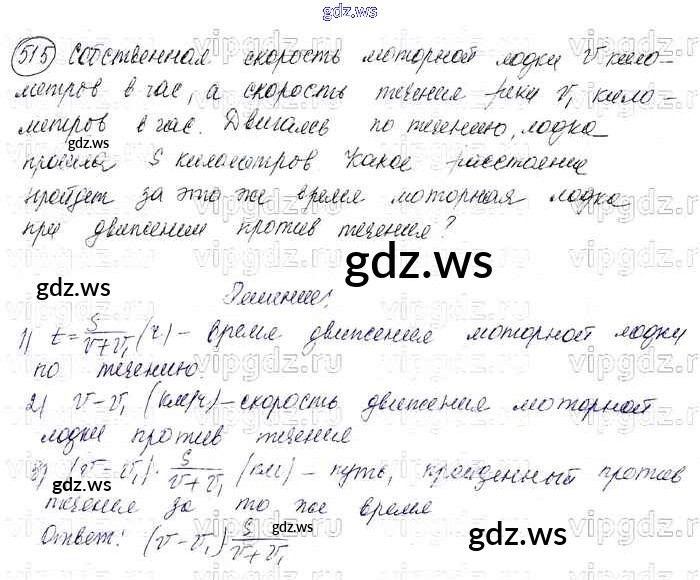 gdz.ws
515 Собственная скорость моторной лодки V кило-
метров в час, а скорость течения реки V₁ кило-
метров в час. Двигаясь по течению, лодка
прошла S километров Какое расстояние
пройдет за это же время моторная лодка
при движении против течения?
Решение:
1) t = S/(V+V₁) (ч) – время движения моторной лодки
по течению.
2) V – V₁ (км/ч) – скорость движения моторной
лодки против течения
3) (V – V₁) · S/(V+V₁) (км) – путь, пройденный против
течения за то же время
Ответ: (V – V₁) S/(V+V₁)